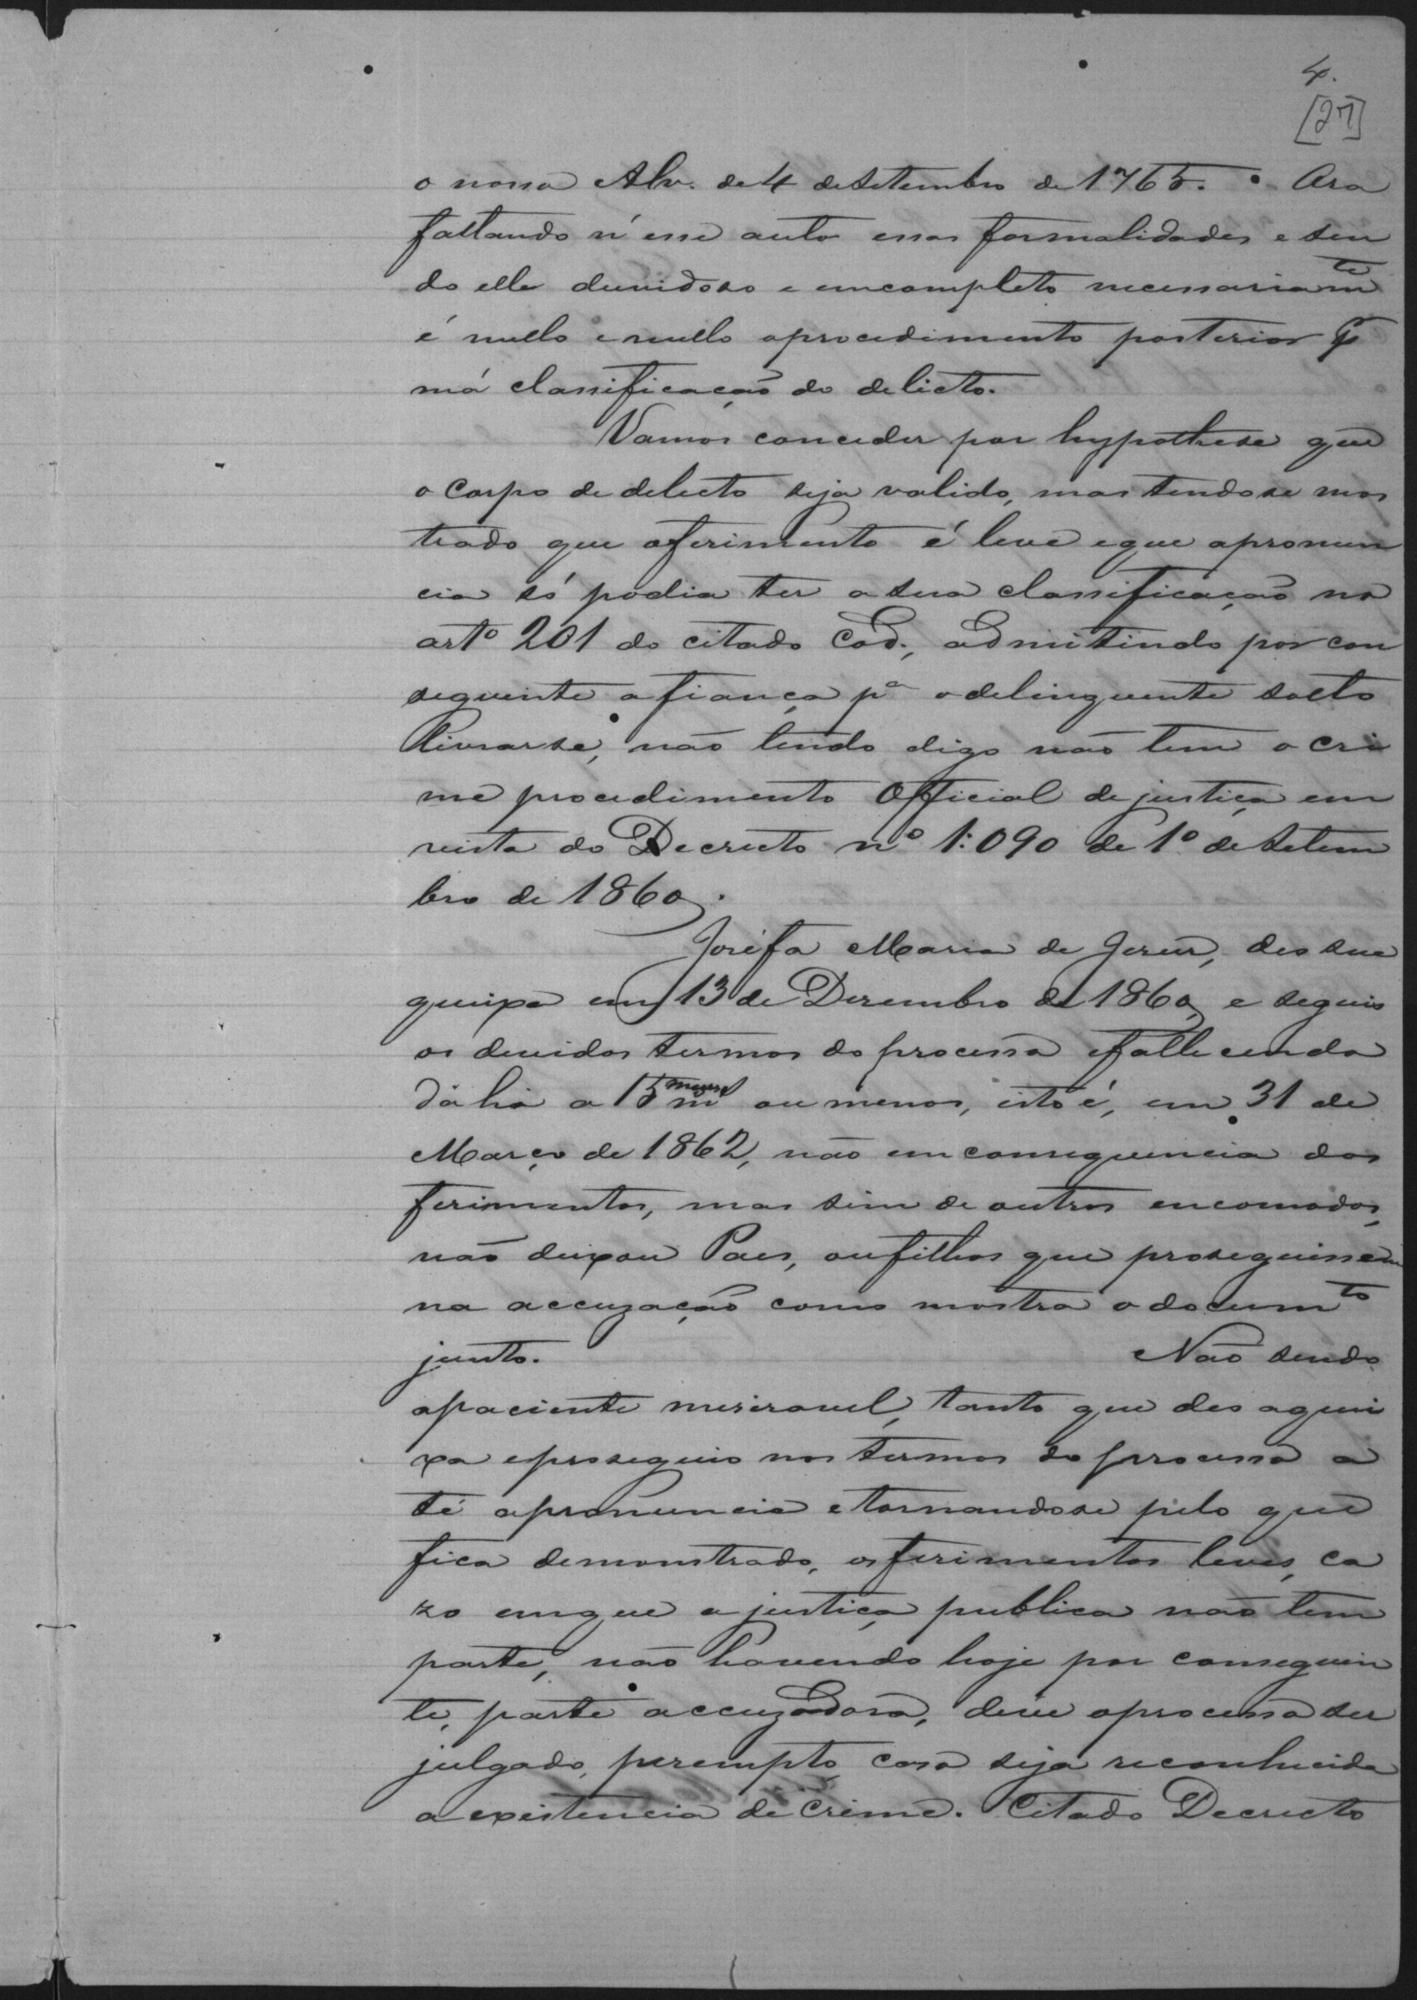 4.
[27]
o nosso Alv. de 4 de Setembro de 1765. Ora
faltando n'esse auto essas formalidades e sen
do elle duvidoso e emcompleto necessariam.te
é nullo e nullo o procedimento posterior
má classificação do delicto.
Vamos conceder por hypothese que
o corpo de delicto seja valido, mas tendose mos
trado que o ferimento é leve e que a pronun
cia só podia ter a sua classificação no
artº 201 do citado Cod., admitindo por con
seguinte a fiança pª o delinquente solto
livrarse, não tendo digo não tem o cri
me procedimento Official de justiça em
vista do Decreto nº 1:090 de 1º de Setem
bro de 1860.
Josefa Maria de Jesus, deo sua
queixa em 13 de Dezembro de 1860, e seguio
os devidos termos do processo e fallecendo
dahi a 15 meses ou menos, isto é, em 31 de
Março de 1862, não em consequencia dos
ferimentos, mas sim de outros encomodos,
não deixou Paes, ou filhos que proseguissem
na accuzação como mostra o docum.to
junto. Não sendo
a paciente miseravel, tanto que deo a quei
xa e proseguio nos termos do processo a
té a pronuncia e tornandose pelo que
fica demonstrado, os ferimentos leves, ca
zo em que a justiça publica não tem
parte, não havendo hoje por conseguin
te, parte accuzadora, deve o processo ser
julgado, perempto, caso seja reconhecida
a existencia de crime. Citado Decreto